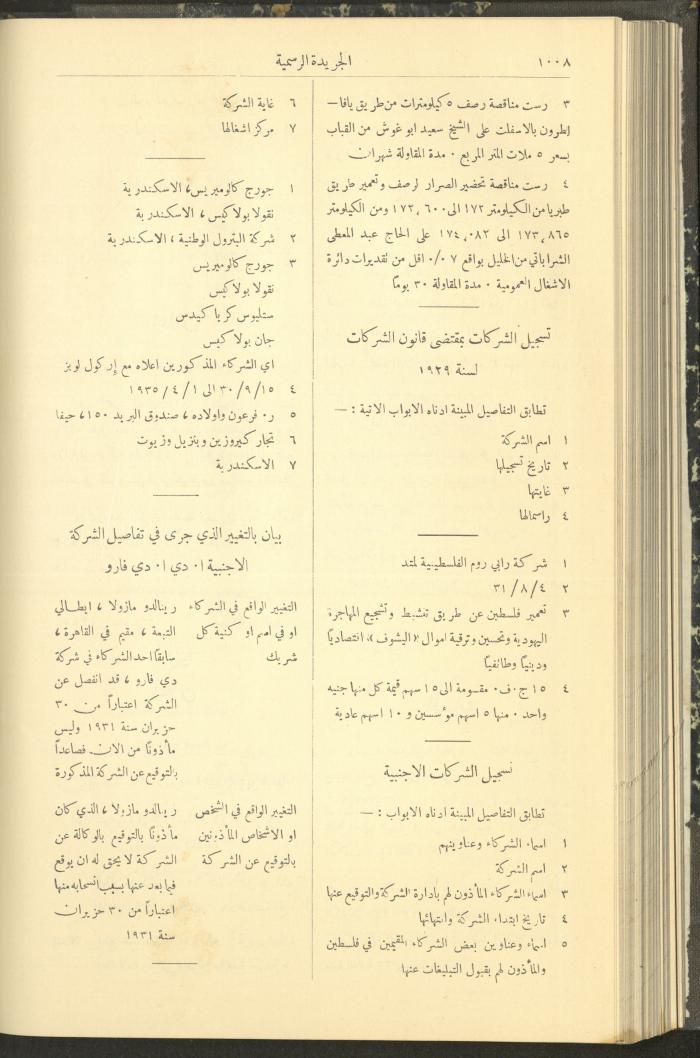 ١٠٠٨
الجريدة الرسمية
٣ رست مناقصة رصف ٥ كيلومترات من طريق يافا —
اطرون بالاسفلت على الشيخ سعيد ابو غوش من القباب
بسعر ٥ ملات المتر المربع ٠ مدة المقاولة شهران
٤ رست مناقصة تحضير الصرار لرصف وتعمير طريق
طبريا من الكيلومتر ١٧٢ الى ١٧٢،٦٠٠ ومن الكيلومتر
١٧٣،٨٦٥ الى ١٧٤،٠٨٢ على الحاج عبد المعطي
الشراباتي من الخليل بواقع ٧ ٠/٠ اقل من تقديرات دائرة
الاشغال العمومية ٠ مدة المقاولة ٣٠ يوماً
تسجيل الشركات بمقتضى قانون الشركات
لسنة ١٩٢٩
تطابق التفاصيل المبينة ادناه الابواب الاتية : —
١ اسم الشركة
٢ تاريخ تسجيلها
٣ غايتها
٤ راسمالها
١ شركة رابي روم الفلسطينية لمتد
٢ ٣١/٨/٤
٣ تعمير فلسطين عن طريق تنشيط وتشجيع المهاجرة
اليهودية وتحسين وترقية اموال «اليشوف» اقتصادياً
ودينياً وطائفياً
٤ ١٥ ج٠ف٠ مقسومة الى ١٥ سهم قيمة كل منها جنيه
واحد ٠ منها ٥ اسهم مؤسسين و ١٠ اسهم عادية
تسجيل الشركات الاجنبية
تطابق التفاصيل المبينة ادناه الابواب : —
١ اسماء الشركاء وعناوينهم
٢ اسم الشركة
٣ اسماء الشركاء المأذون لهم بادارة الشركة والتوقيع عنها
٤ تاريخ ابتداء الشركة وانتهائها
٥ اسماء وعناوين بعض الشركاء المقيمين في فلسطين
والمأذون لهم بقبول التبليغات عنها
٦ غاية الشركة
٧ مركز اشغالها
١ جورج كالوميريس، الاسكندرية
نقولا بولاكيس ، الاسكندرية
٢ شركة البترول الوطنية ، الاسكندرية
٣ جورج كالوميريس
نقولا بولاكيس
ستليوس كرياكيدس
جان بولاكيس
اي الشركاء المذكورين اعلاه مع إركول لوبز
٤ ٣٠/٩/١٥ الى ١/ ٤ /١٩٣٥
٥ ر٠ فرعون واولاده ، صندوق البريد ١٥٠، حيفا
٦ تجار كيروزين وبنزيل وزيوت
٧ الاسكندرية
بيان بالتغيير الذي جرى في تفاصيل الشركة
الاجنبية ا٠ دي ا٠ دي فارو
التغيير الواقع في الشركاء
او في اسم او كنية كل
شريك
رينالدو مازولا ، ايطالي
التبعة ، مقيم في القاهرة ،
سابقاً احد الشركاء في شركة
دي فارو ، قد انفصل عن
الشركة اعتباراً من ٣٠
حزيران سنة ١٩٣١ وليس
مأذوناً من الان فصاعداً
بالتوقيع عن الشركة المذكورة
التغيير الواقع في الشخص
او الاشخاص المأذونين
بالتوقيع عن الشركة
رينالدو مازولا ، الذي كان
مأذوناً بالتوقيع بالوكالة عن
الشركة لا يحق له ان يوقع
فيما بعد عنها بسبب انسحابه منها
اعتباراً من ٣٠ حزيران
سنة ١٩٣١